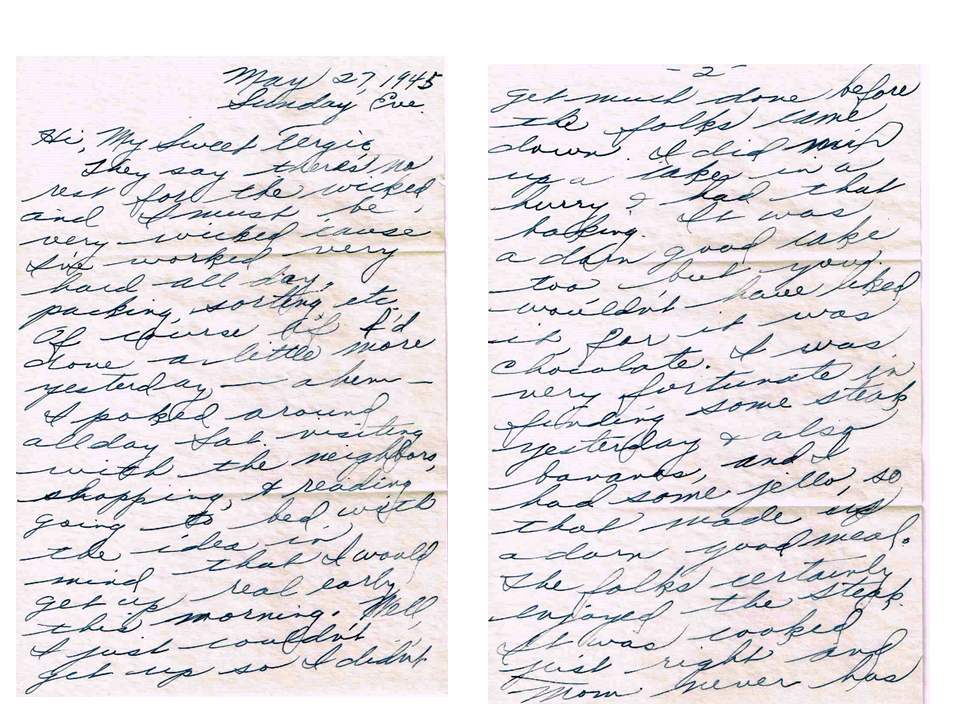 May 27, 1945
Sunday Eve.
Hi, My Sweet
They say there's no
rest for the wicked,
and I must be
very wicked 'cause
I've worked very
hard all day,
packing, sorting etc.
Of course if I'd
done a little more
yesterday — ahem —
I poked around
all day Sat. visiting
with the neighbors,
shopping, & reading
going to bed with
the idea in
mind that I would
get up real early
this morning. Well
I just couldn't
get up so I didn't
- 2 -
get much done before
the folks came
down. I did mix
up a cake in a
hurry & had that
baking. It was
a darn good cake
too but you
wouldn't have liked
it for it was
chocolate. I was
very fortunate in
finding some steak
yesterday & also
bananas, and I
had some jello, so
that made up
a darn good meal.
The folks certainly
enjoyed the steak.
It was cooked
just right and
Mom never has